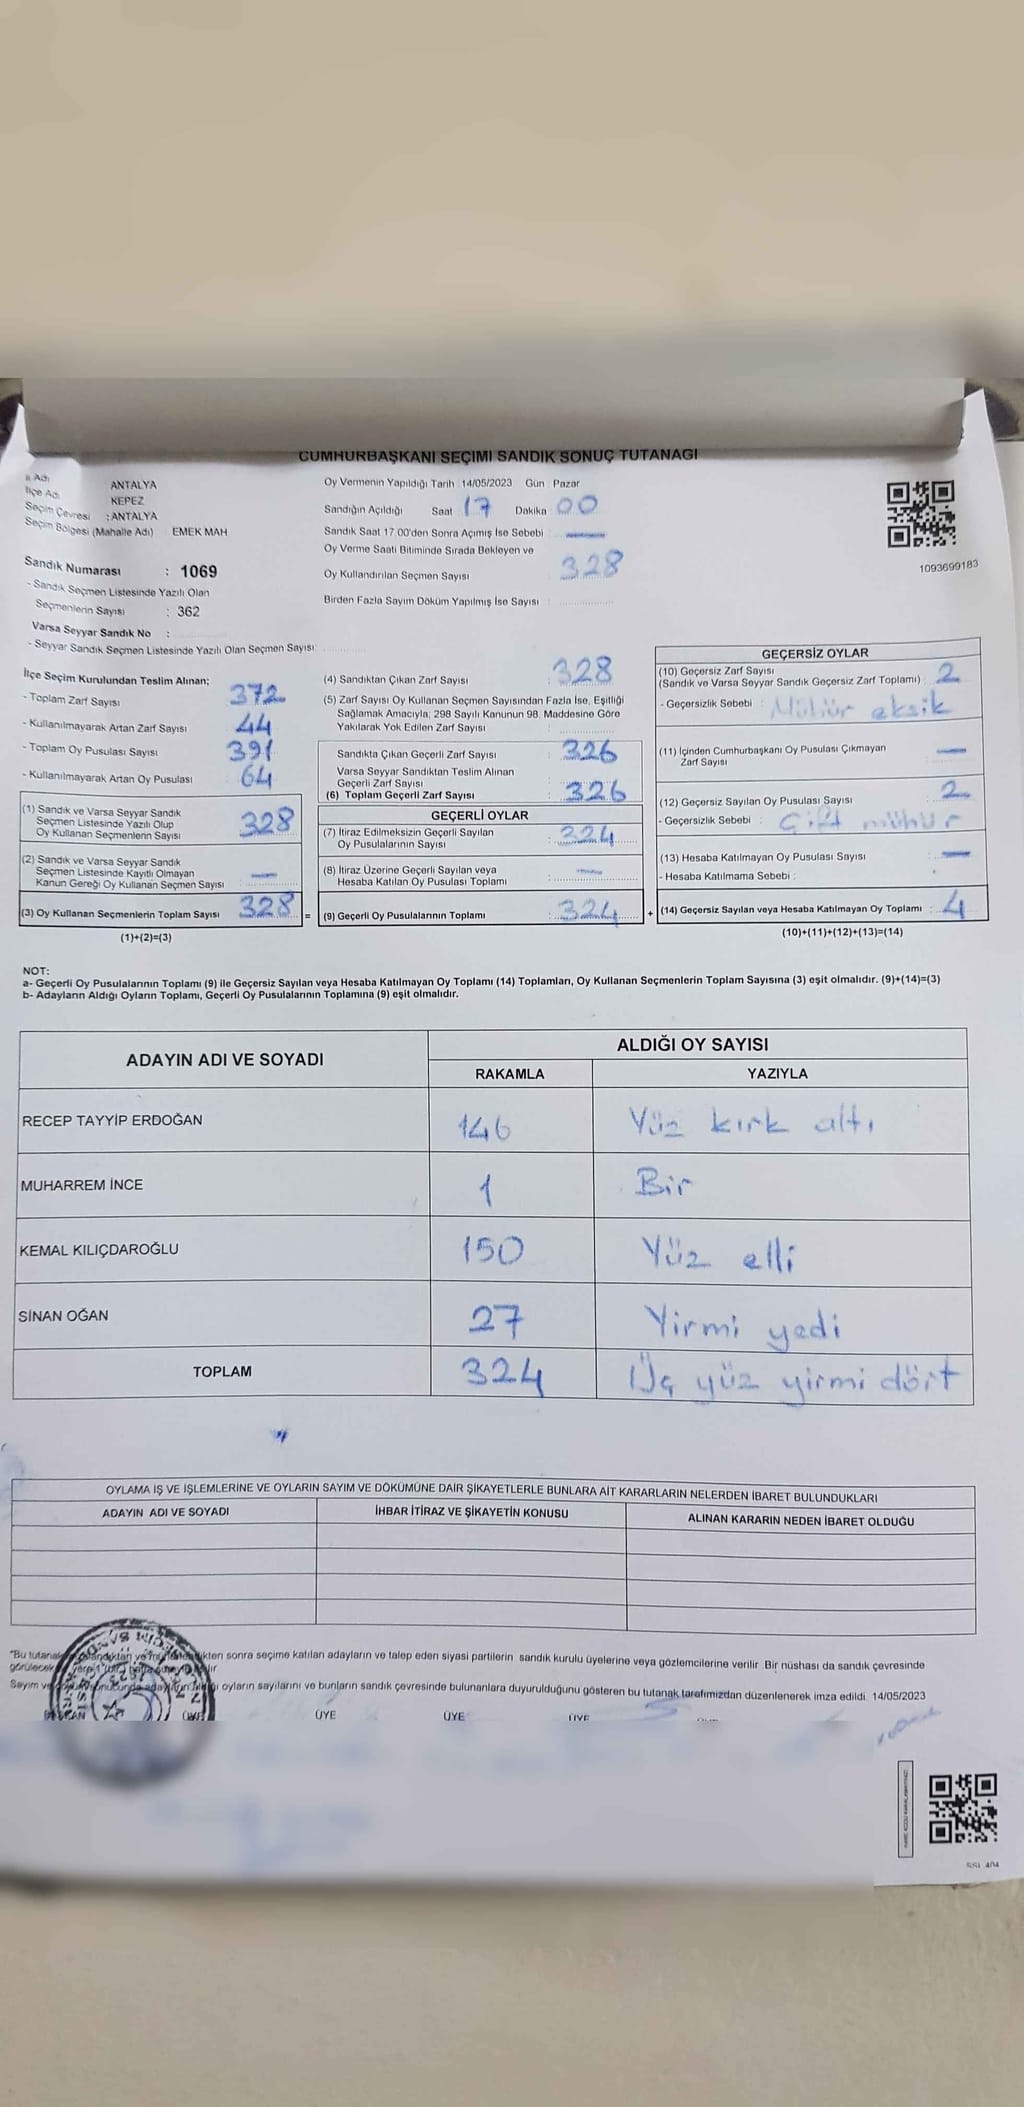 CUMHURBAŞKANI SEÇİMİ SANDIK SONUÇ TUTANAĞI
İl Adı ANTALYA
İlçe Adı KEPEZ
Seçim Çevresi : ANTALYA
Seçim Bölgesi (Mahalle Adı) EMEK MAH
Sandık Numarası : 1069
- Sandık Seçmen Listesinde Yazılı Olan
Seçmenlerin Sayısı : 362
Varsa Seyyar Sandık No :
- Seyyar Sandık Seçmen Listesinde Yazılı Olan Seçmen Sayısı
Oy Vermenin Yapıldığı Tarih : 14/05/2023 Gün : Pazar
Sandığın Açıldığı Saat 17 Dakika 00
Sandık Saat 17.00'den Sonra Açımış İse Sebebi : —
Oy Verme Saati Bitiminde Sırada Bekleyen ve
Oy Kullandırılan Seçmen Sayısı 328
Birden Fazla Sayım Döküm Yapılmış İse Sayısı :
1093699183
İlçe Seçim Kurulundan Teslim Alınan;
- Toplam Zarf Sayısı 372
- Kullanılmayarak Artan Zarf Sayısı 44
- Toplam Oy Pusulası Sayısı 391
- Kullanılmayarak Artan Oy Pusulası 64
(1) Sandık ve Varsa Seyyar Sandık
Seçmen Listesinde Yazılı Olup
Oy Kullanan Seçmenlerin Sayısı 328
(2) Sandık ve Varsa Seyyar Sandık
Seçmen Listesinde Kayıtlı Olmayan
Kanun Gereği Oy Kullanan Seçmen Sayısı —
(3) Oy Kullanan Seçmenlerin Toplam Sayısı 328 =
(1)+(2)=(3)
(4) Sandıktan Çıkan Zarf Sayısı : 328
(5) Zarf Sayısı Oy Kullanan Seçmen Sayısından Fazla İse, Eşitliği
Sağlamak Amacıyla; 298 Sayılı Kanunun 98. Maddesine Göre
Yakılarak Yok Edilen Zarf Sayısı :
Sandıkta Çıkan Geçerli Zarf Sayısı : 326
Varsa Seyyar Sandıktan Teslim Alınan
Geçerli Zarf Sayısı :
(6) Toplam Geçerli Zarf Sayısı : 326
GEÇERLİ OYLAR
(7) İtiraz Edilmeksizin Geçerli Sayılan
Oy Pusulalarının Sayısı : 324
(8) İtiraz Üzerine Geçerli Sayılan veya
Hesaba Katılan Oy Pusulası Toplamı : —
(9) Geçerli Oy Pusulalarının Toplamı : 324 +
GEÇERSİZ OYLAR
(10) Geçersiz Zarf Sayısı
(Sandık ve Varsa Seyyar Sandık Geçersiz Zarf Toplamı) : 2
- Geçersizlik Sebebi : Mühür eksik
(11) İçinden Cumhurbaşkanı Oy Pusulası Çıkmayan
Zarf Sayısı : —
(12) Geçersiz Sayılan Oy Pusulası Sayısı : 2
- Geçersizlik Sebebi : Çift mühür
(13) Hesaba Katılmayan Oy Pusulası Sayısı : —
- Hesaba Katılmama Sebebi :
(14) Geçersiz Sayılan veya Hesaba Katılmayan Oy Toplamı : 4
(10)+(11)+(12)+(13)=(14)
NOT:
a- Geçerli Oy Pusulalarının Toplamı (9) ile Geçersiz Sayılan veya Hesaba Katılmayan Oy Toplamı (14) Toplamları, Oy Kullanan Seçmenlerin Toplam Sayısına (3) eşit olmalıdır. (9)+(14)=(3)
b- Adayların Aldığı Oyların Toplamı, Geçerli Oy Pusulalarının Toplamına (9) eşit olmalıdır.
ADAYIN ADI VE SOYADI ALDIĞI OY SAYISI
RAKAMLA YAZIYLA
RECEP TAYYİP ERDOĞAN 146 Yüz kırk altı
MUHARREM İNCE 1 Bir
KEMAL KILIÇDAROĞLU 150 Yüz elli
SİNAN OĞAN 27 Yirmi yedi
TOPLAM 324 Üç yüz yirmi dört
OYLAMA İŞ VE İŞLEMLERİNE VE OYLARIN SAYIM VE DÖKÜMÜNE DAİR ŞİKAYETLERLE BUNLARA AİT KARARLARIN NELERDEN İBARET BULUNDUKLARI
ADAYIN ADI VE SOYADI İHBAR İTİRAZ VE ŞİKAYETİN KONUSU ALINAN KARARIN NEDEN İBARET OLDUĞU
*Bu tutanak sonra seçime katılan adayların ve talep eden siyasi partilerin sandık kurulu üyelerine veya gözlemcilerine verilir. Bir nüshası da sandık çevresinde
görülecek
Sayım ve oyların sayılarını ve bunların sandık çevresinde bulunanlara duyurulduğunu gösteren bu tutanak tarafımızdan düzenlenerek imza edildi. 14/05/2023
ÜYE ÜYE ÜYE